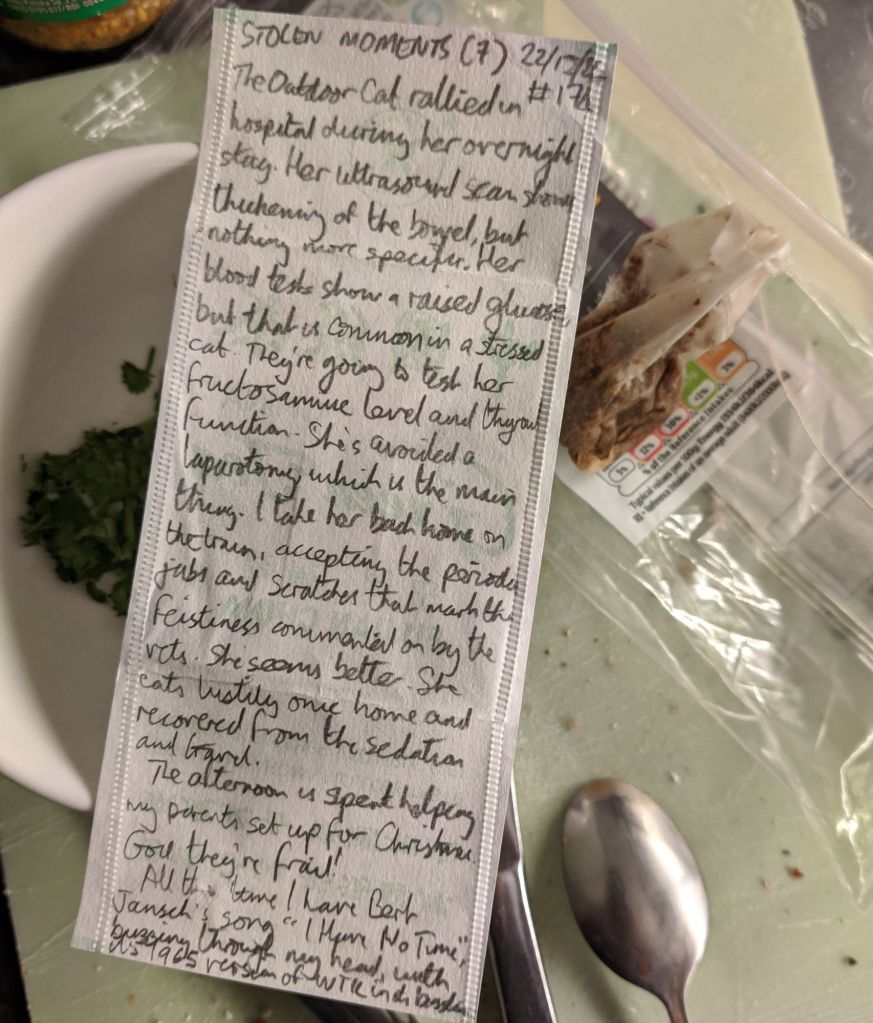 STOLEN MOMENTS (7) 22/12/
#171
The Outdoor Cat rallied in
hospital during her overnight
stay. Her ultrasound scan shows
thickening of the bowel, but
nothing more specific. Her
blood tests show a raised glucose,
but that is common in a stressed
cat. They're going to test her
fructosamine level and thyroid
function. She's avoided a
laparotomy which is the main
thing. I take her back home on
the train, accepting the periodic
jabs and scratches that mark the
feistiness commented on by the
vets. She seems better. She
eats lustily once home and
recovered from the sedation
and travel.
The afternoon is spent helping
my parents set up for Christmas.
God they're frail!
All the time I have Bert
Jansch's song "I Have No Time",
buzzing through my head, with
its 1965 version of
5% 12% 10% <1% 3%
% of the Reference Intakes
Typical values per 100g: Energy
RI= reference intakes of an average adult